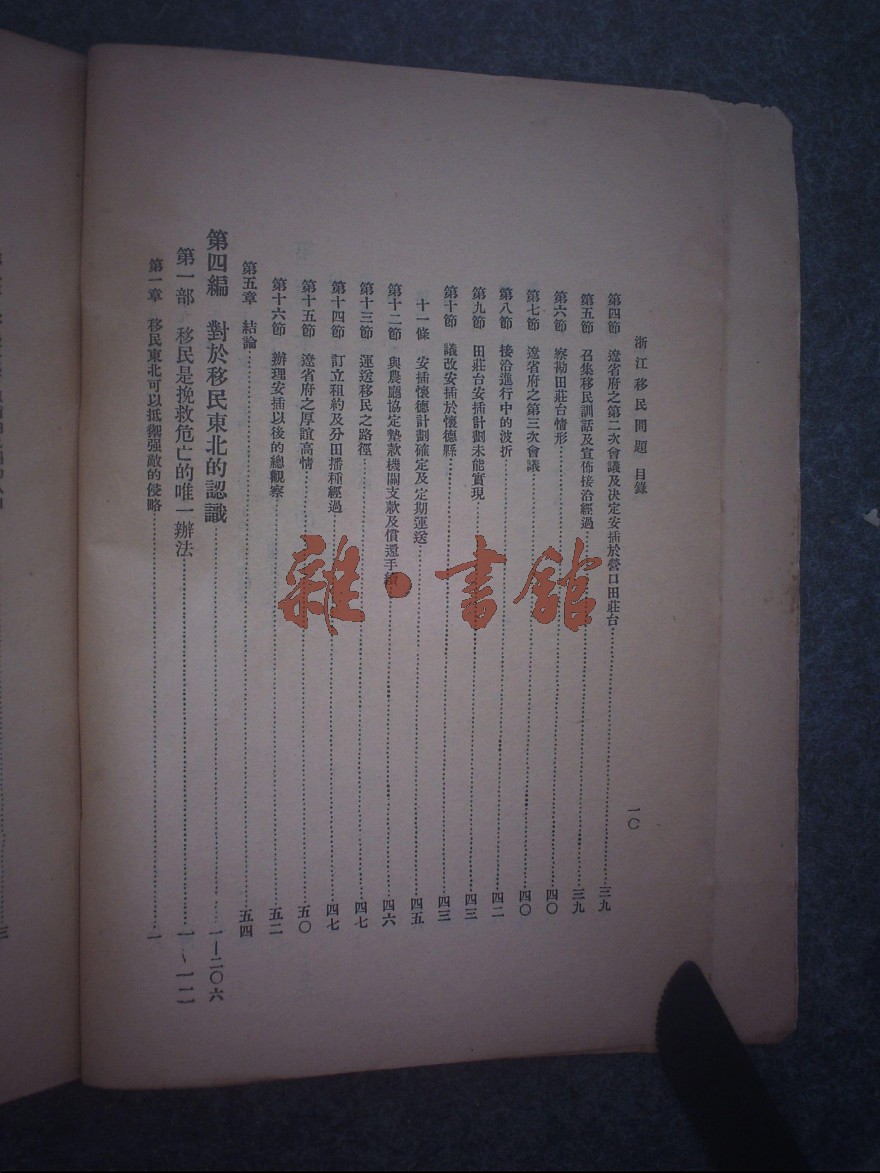 浙江移民問題 目錄
一〇
第四節 遼省府之第二次會議及決定安插於營口田莊台……三九
第五節 召集移民訓話及宣佈接洽經過……三九
第六節 察勘田莊台情形……四〇
第七節 遼省府之第三次會議……四〇
第八節 接洽進行中的波折……四二
第九節 田莊台安插計劃未能實現……四三
第十節 議改安插於懷德縣……四三
十一條 安插懷德計劃確定及定期運送……四五
第十二節 與農廳協定墊款機關支款及償還手續……四六
第十三節 運送移民之路徑……四七
第十四節 訂立租約及分田播種經過……四七
第十五節 遼省府之厚誼高情……五〇
第十六節 辦理安插以後的總觀察……五二
第五章 結論……五四
第四編 對於移民東北的認識……一—二〇六
第一部 移民是挽救危亡的唯一辦法……一—一一二
第一章 移民東北可以抵禦强敵的侵略……一
雜·書館